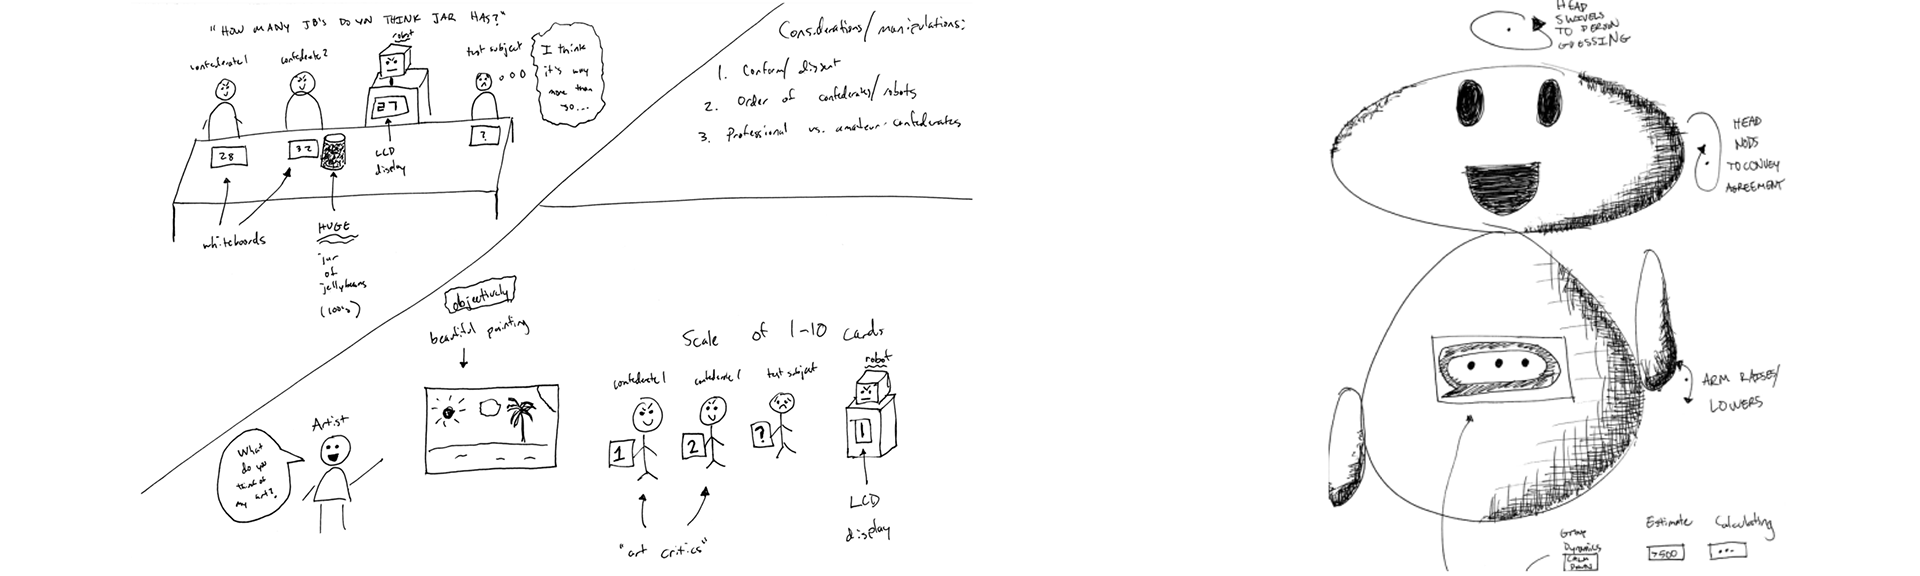 "HOW MANY JB'S DO YN THINK JAR HAS?"
confederate 1
confederate 2
robot
test subject
I think
it's way
more than
30...
28
32
27
?
LCD
display
whiteboards
HUGE
jar
of
jellybeans
(100s)
Considerations/manipulations:
1. Conform/dissent
2. Order of confederates/robots
3. Professional vs. amateur confederates
objectively
beautiful painting
Artist
What
do you
think of
my art?
Scale of 1-10 cards
confederate 1
confederate 1
test subject
robot
1
2
?
1
"art critics"
LCD
display
HEAD
SWIVELS
TO PERSON
GUESSING
HEAD
NODS
TO CONVEY
AGREEMENT
ARM RAISES/
LOWERS
...
Group
Dynamics
CALM
DOWN
Estimate
>500
Calculating
...